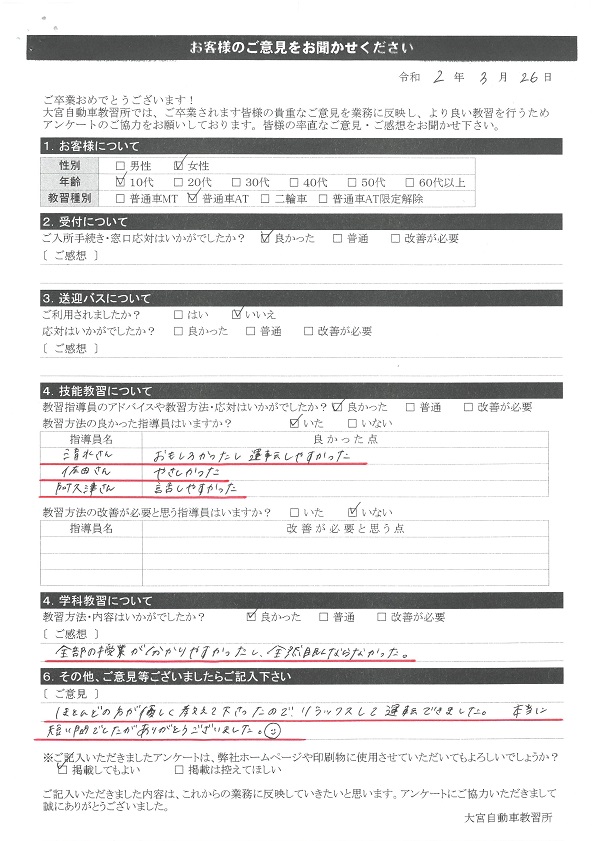 お客様のご意見をお聞かせください
令和 2 年 3 月 26 日
ご卒業おめでとうございます！
大宮自動車教習所では、ご卒業されます皆様の貴重なご意見を業務に反映し、より良い教習を行うため
アンケートのご協力をお願いしております。皆様の率直なご意見・ご感想をお聞かせ下さい。
1. お客様について
性別 □ 男性 ☑ 女性
年齢 ☑ 10代 □ 20代 □ 30代 □ 40代 □ 50代 □ 60代以上
教習種別 □ 普通車MT ☑ 普通車AT □ 二輪車 □ 普通車AT限定解除
2. 受付について
ご入所手続き・窓口応対はいかがでしたか？ ☑ 良かった □ 普通 □ 改善が必要
〔 ご感想 〕
3. 送迎バスについて
ご利用されましたか？ □ はい ☑ いいえ
応対はいかがでしたか？ □ 良かった □ 普通 □ 改善が必要
〔 ご感想 〕
4. 技能教習について
教習指導員のアドバイスや教習方法・応対はいかがでしたか？ ☑ 良かった □ 普通 □ 改善が必要
教習方法の良かった指導員はいますか？ ☑ いた □ いない
指導員名 良かった点
清水さん おもしろかったし運転しやすかった
佐田さん やさしかった
阿久津さん 話しやすかった
教習方法の改善が必要と思う指導員はいますか？ □ いた ☑ いない
指導員名 改善が必要と思う点
4. 学科教習について
教習方法・内容はいかがでしたか？ ☑ 良かった □ 普通 □ 改善が必要
〔 ご感想 〕
全部の授業が分かりやすかったし、全然眠くならなかった。
6. その他、ご意見等ございましたらご記入下さい
〔 ご意見 〕
ほとんどの方が優しく教えて下さったので、リラックスして運転できました。 本当に
短い間でしたがありがとうございました。☺
※ご記入いただきましたアンケートは、弊社ホームページや印刷物に使用させていただいてもよろしいでしょうか？
☑ 掲載してもよい □ 掲載は控えてほしい
ご記入いただきました内容は、これからの業務に反映していきたいと思います。アンケートにご協力いただきまして
誠にありがとうございました。
大宮自動車教習所